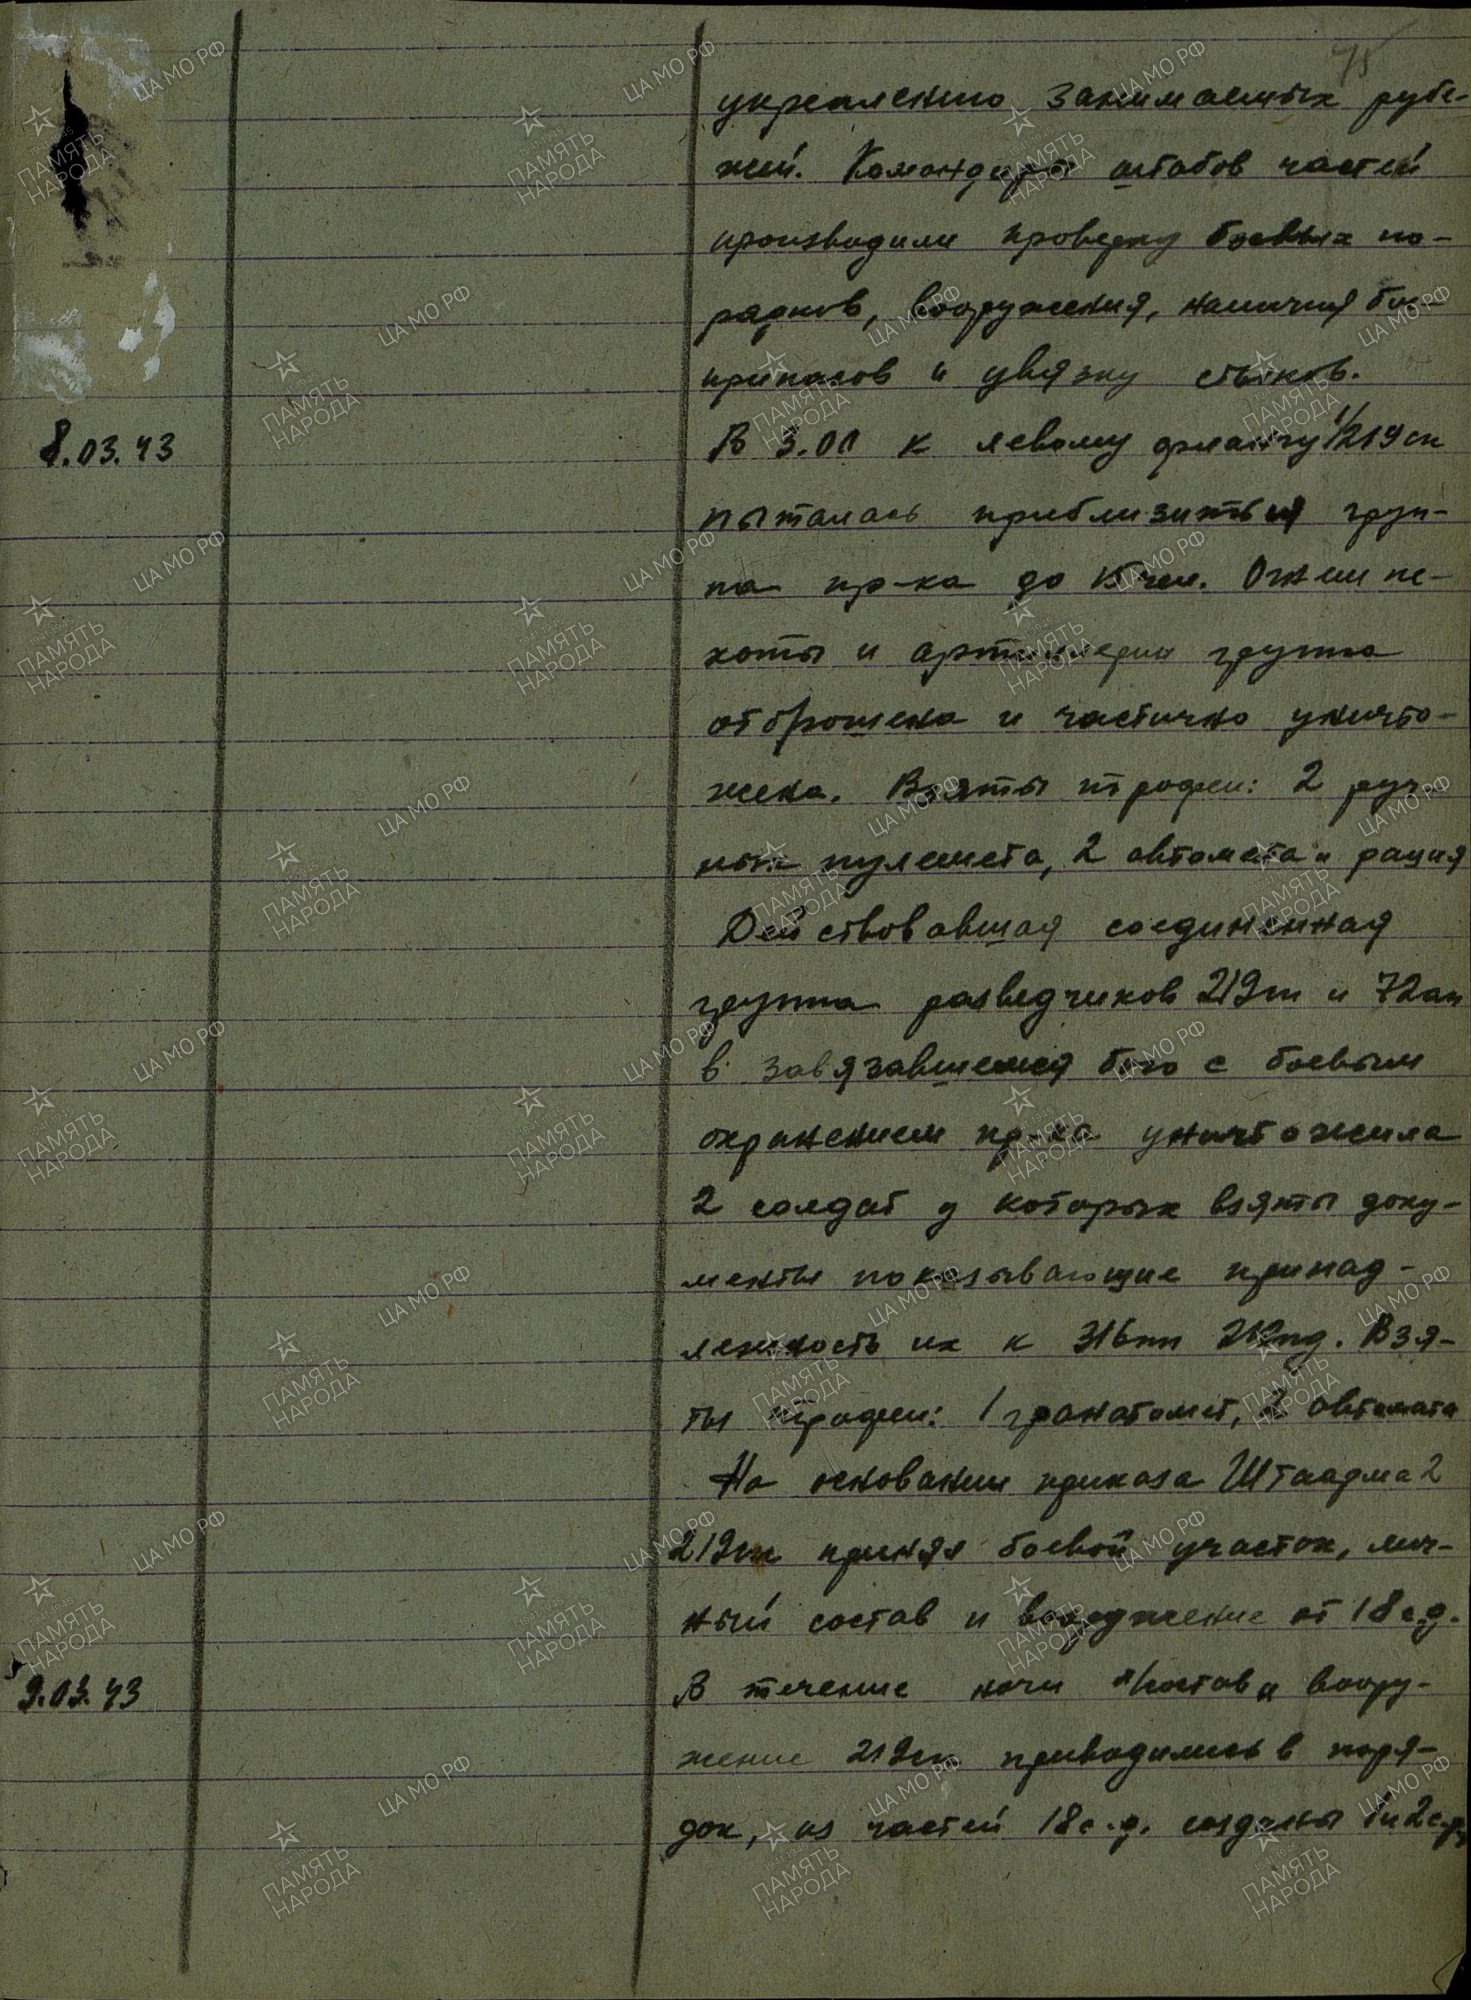 75
укреплению занимаемых рубе-
жей. Командиры штабов частей
производили проверку боевых по-
рядков, вооружения, наличия бое-
припасов и увязку стыков.
8.03.43
В 3.00 к левому флангу 1/219сп
пыталась приблизиться груп-
па пр-ка до 15 чел. Огнем пе-
хоты и артиллерии группа
отброшена и частично уничто-
жена. Взяты трофеи: 2 руч-
ных пулемета, 2 автомата и рация
Действовавшая соединенная
группа разведчиков 219сп и 72ап
в завязавшемся бою с боевым
охранением пр-ка уничтожила
2 солдат у которых взяты доку-
менты показывающие принад-
лежность их к 316пп 212пд. Взя-
ты трофеи: 1 гранатомет, 2 автомата
На основании приказа Штаарма 2
219сп принял боевой участок, лич-
ный состав и вооружение от 18с.д.
9.03.43
В течение ночи л/состав и воору-
жение 219сп приводились в поря-
док, из частей 18с.д. созданы 1 и 2
ЦА МО РФ
ПАМЯТЬ НАРОДА